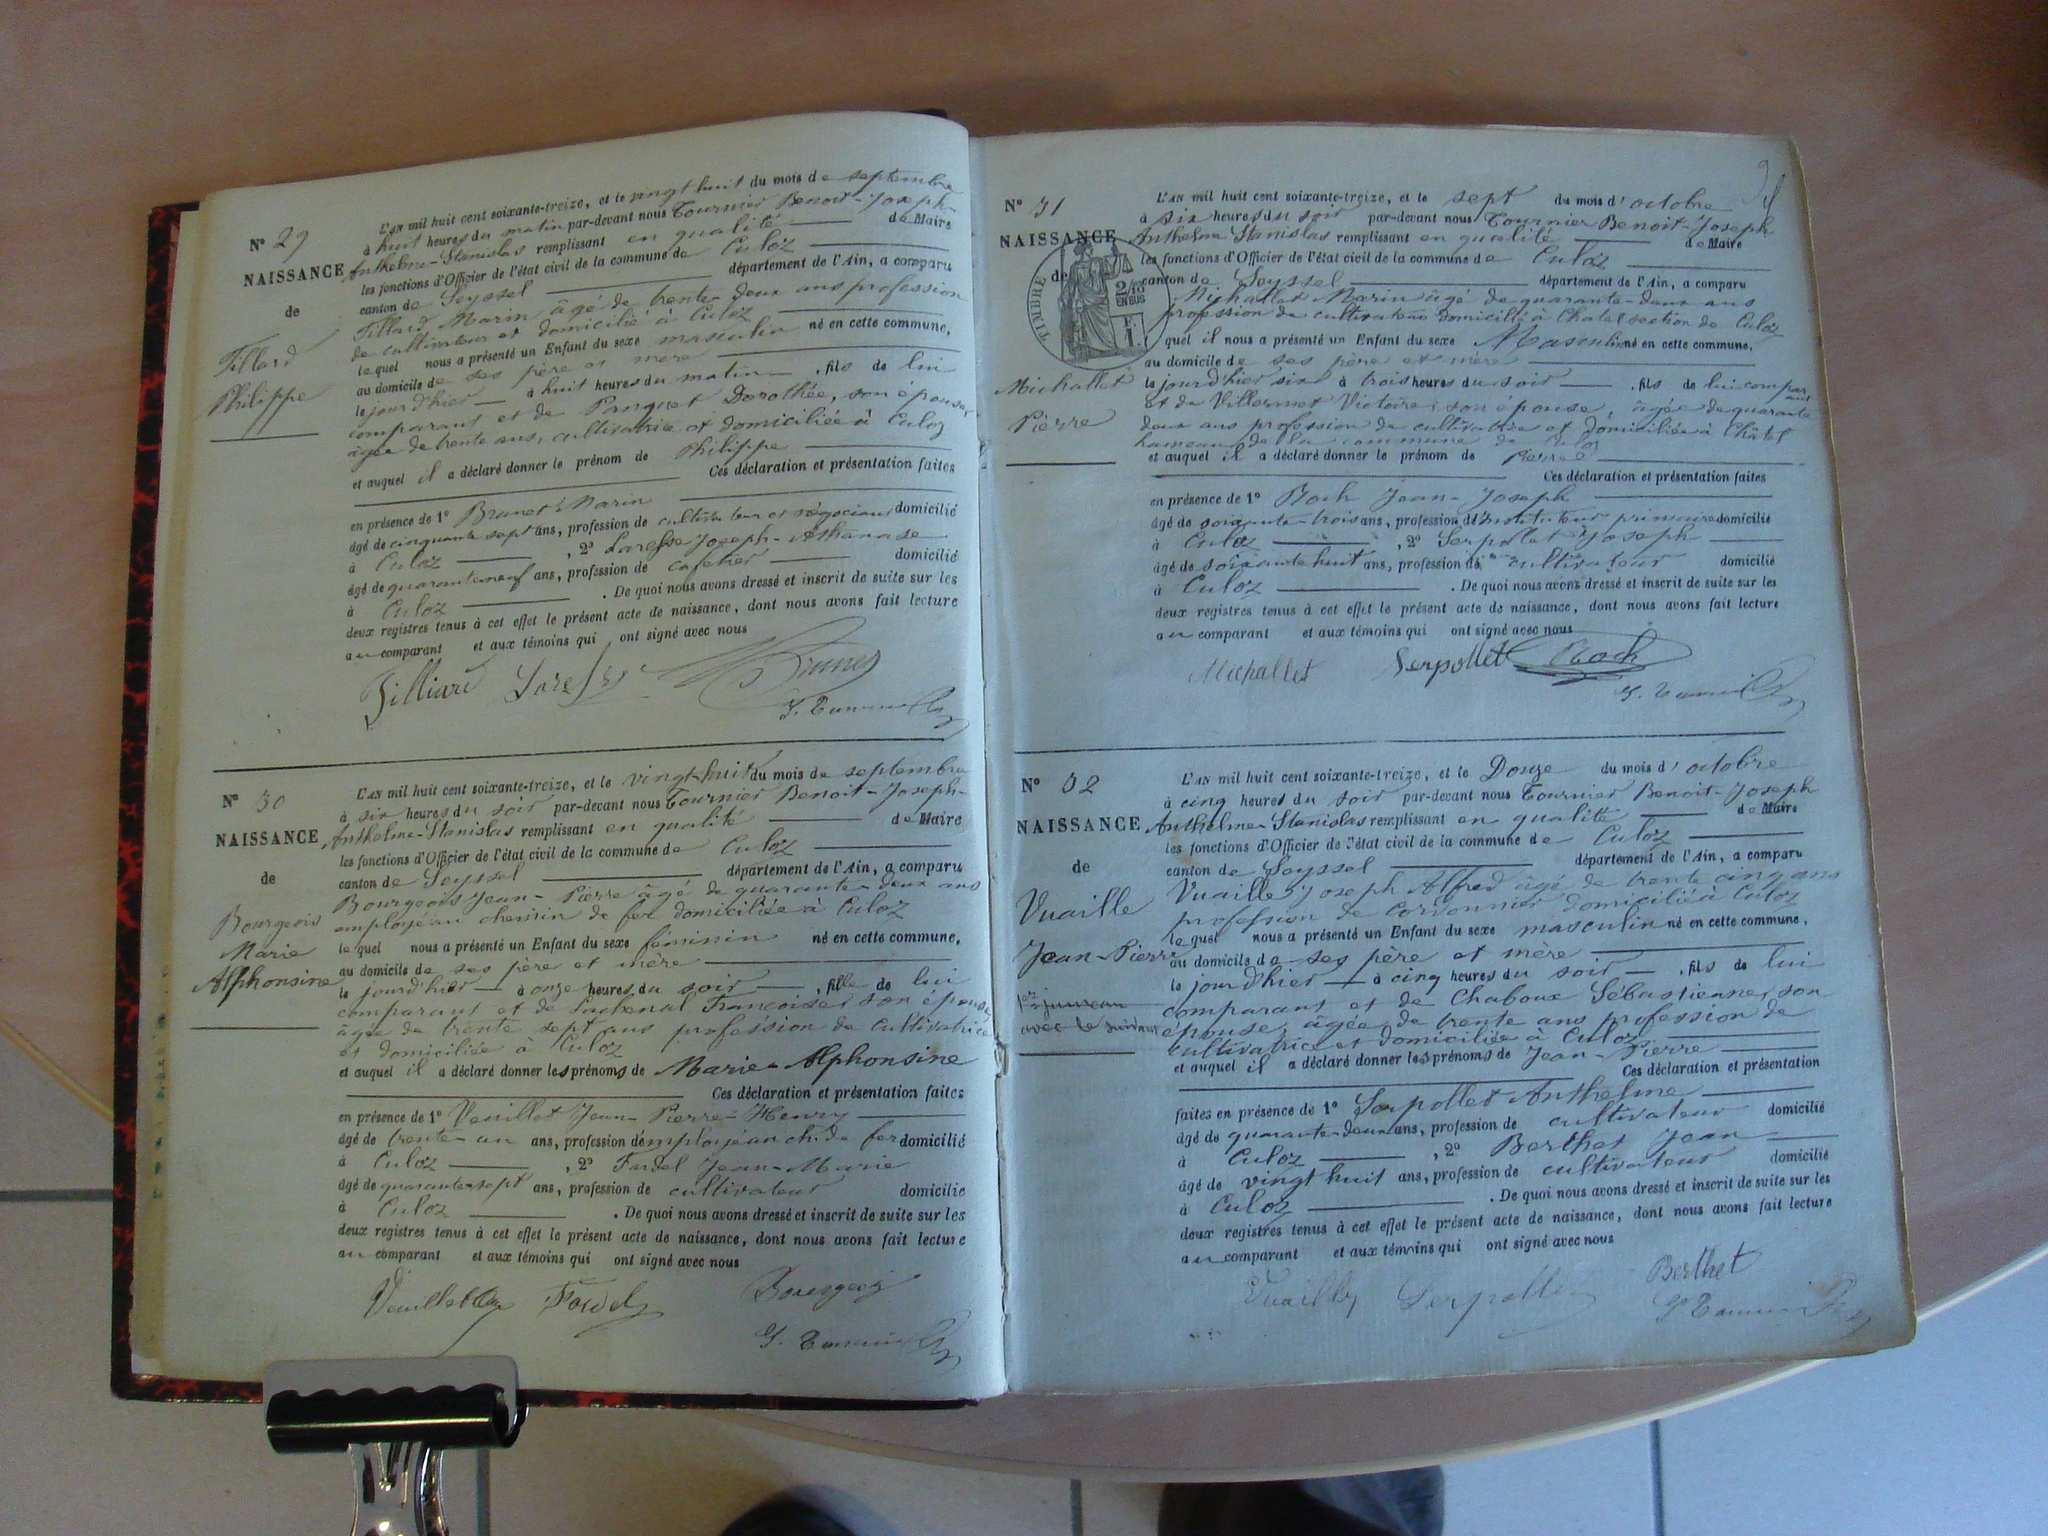 N° 29
NAISSANCE
de
Tillard
Philippe
L'AN mil huit cent soixante-treize, et le vingt huit du mois de septembre
à huit heures du matin par-devant nous Tournier Benoit-Joseph-
Anthelme-Stanislas remplissant en qualité de Maire
les fonctions d'Officier de l'état civil de la commune de Culoz
canton de Seyssel département de l'Ain, a comparu
Tillard Marin âgé de trente-deux ans profession
de cultivateur et domicilié à Culoz
lequel nous a présenté un Enfant du sexe masculin né en cette commune,
au domicile de ses père et mère
le jour d'hier à huit heures du matin, fils de lui
comparant et de Panquet Dorothée, son épouse,
âgée de trente ans, cultivatrice et domiciliée à Culoz
et auquel il a déclaré donner le prénom de Philippe
Ces déclaration et présentation faites
en présence de 1° Brunet Marin
âgé de cinquante sept ans, profession de cultivateur et négociant domicilié
à Culoz, 2° Joseph-Athanase
âgé de quarante neuf ans, profession de cafetier domicilié
à Culoz. De quoi nous avons dressé et inscrit de suite sur les
deux registres tenus à cet effet le présent acte de naissance, dont nous avons fait lecture
au comparant et aux témoins qui ont signé avec nous
Tilliard
N° 30
NAISSANCE
de
Bourgeois
Marie
Alphonsine
L'AN mil huit cent soixante-treize, et le vingt-huit du mois de septembre
à six heures du soir par-devant nous Tournier Benoit-Joseph-
Anthelme-Stanislas remplissant en qualité de Maire
les fonctions d'Officier de l'état civil de la commune de Culoz
canton de Seyssel département de l'Ain, a comparu
Bourgeois Jean-Pierre âgé de quarante-deux ans
employé au chemin de fer domiciliée à Culoz
lequel nous a présenté un Enfant du sexe féminin né en cette commune,
au domicile de ses père et mère
le jour d'hier à onze heures du soir, fille de lui
comparant et de Lachenal Françoise, son épouse,
âgée de trente sept ans profession de cultivatrice
et domiciliée à Culoz
et auquel il a déclaré donner les prénoms de Marie-Alphonsine
Ces déclaration et présentation faites
en présence de 1° Veuillet Jean-Pierre-Henry
âgé de trente-un ans, profession d'employé au ch. de fer domicilié
à Culoz, 2° Fardel Jean-Marie
âgé de quarante sept ans, profession de cultivateur domicilié
à Culoz. De quoi nous avons dressé et inscrit de suite sur les
deux registres tenus à cet effet le présent acte de naissance, dont nous avons fait lecture
au comparant et aux témoins qui ont signé avec nous
Veuillet Fardel Bourgeois
N° 31
NAISSANCE
de
TIMBRE
2/10
EN SUS
F.
1.
Michallet
Pierre
L'AN mil huit cent soixante-treize, et le sept du mois d'octobre
à six heures du soir par-devant nous Tournier Benoit-Joseph
Anthelme Stanislas remplissant en qualité de Maire
les fonctions d'Officier de l'état civil de la commune de Culoz
canton de Seyssel département de l'Ain, a comparu
Michallet Marin âgé de quarante-deux ans
profession de cultivateur domicilié à Chatel section de Culoz
quel il nous a présenté un Enfant du sexe Masculin né en cette commune,
au domicile de ses père et mère
le jour d'hier six à trois heures du soir, fils de lui comparant
et de Villermet Victoire, son épouse, âgée de quarante
deux ans profession de cultivatrice et domiciliée à Châtel
hameau de la commune de Culoz
et auquel il a déclaré donner le prénom de Pierre
Ces déclaration et présentation faites
en présence de 1° Roch Jean-Joseph
âgé de soixante-trois ans, profession d'Instituteur primaire domicilié
à Culoz, 2° Serpollet Joseph
âgé de soixante huit ans, profession de cultivateur domicilié
à Culoz. De quoi nous avons dressé et inscrit de suite sur les
deux registres tenus à cet effet le présent acte de naissance, dont nous avons fait lecture
au comparant et aux témoins qui ont signé avec nous
Michallet Serpollet Roch
N° 32
NAISSANCE
de
Vuaille
Jean-Pierre
1er jumeau
avec le suivant
L'AN mil huit cent soixante-treize, et le Douze du mois d'octobre
à cinq heures du soir par-devant nous Tournier Benoit-Joseph
Anthelme Stanislas remplissant en qualité de Maire
les fonctions d'Officier de l'état civil de la commune de Culoz
canton de Seyssel département de l'Ain, a comparu
Vuaille Joseph Alfred âgé de trente cinq ans
profession de cordonnier domicilié à Culoz
lequel nous a présenté un Enfant du sexe masculin né en cette commune,
au domicile de ses père et mère
le jour d'hier à cinq heures du soir, fils de lui
comparant et de Chaboux Sébastienne, son
épouse, âgée de trente ans profession de
cultivatrice et domiciliée à Culoz
et auquel il a déclaré donner les prénoms de Jean-Pierre
Ces déclaration et présentation
faites en présence de 1° Serpollet Anthelme
âgé de quarante-deux ans, profession de cultivateur domicilié
à Culoz, 2° Berthet Jean
âgé de vingt huit ans, profession de cultivateur domicilié
à Culoz. De quoi nous avons dressé et inscrit de suite sur les
deux registres tenus à cet effet le présent acte de naissance, dont nous avons fait lecture
au comparant et aux témoins qui ont signé avec nous
Serpollet Berthet